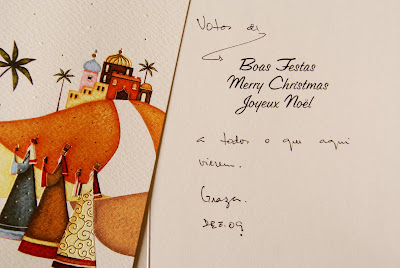 Votos de
Boas Festas
Merry Christmas
Joyeux Noël
a todos o que aqui
vierem.